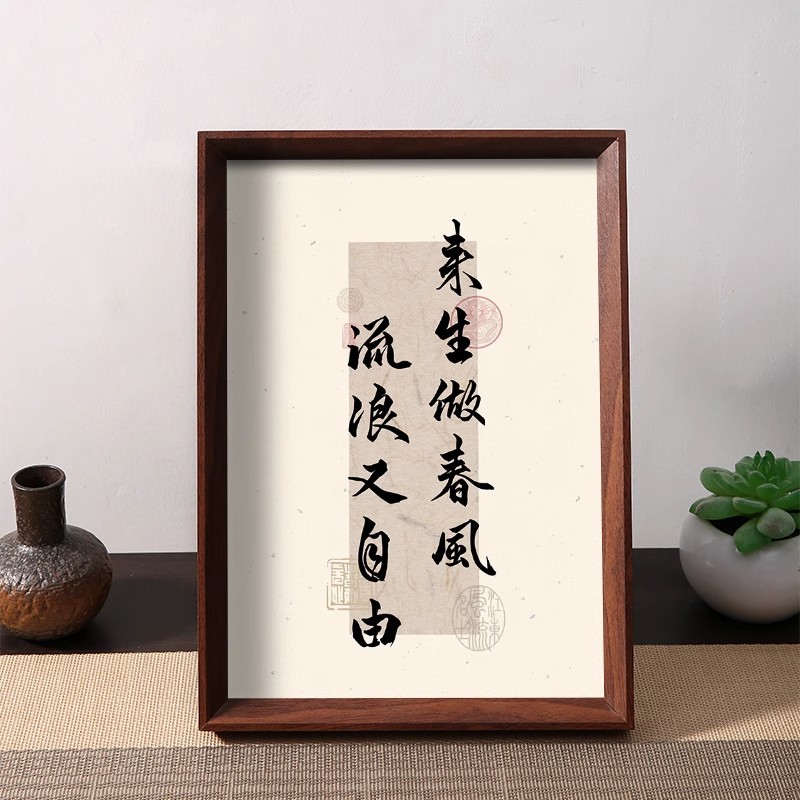 来生做春風
流浪又自由